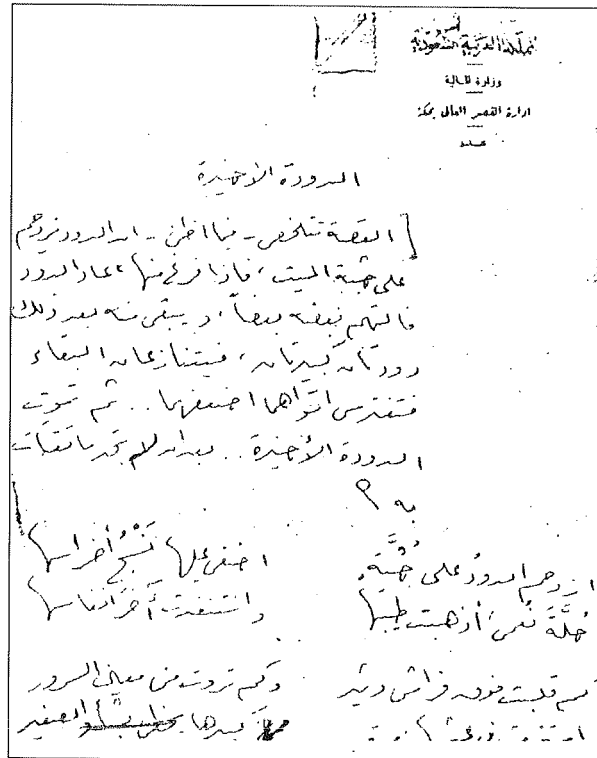 المملكة العربية السعودية
وزارة المالية
ادارة القصر العالي بمكة
عدد
الدودة الأخيرة
[ القصة تتلخص - فيما اظن - ان الدود يزدحم
على جثة الميت، فاذا فرغ منها، عاد الدود
فالتهم بعضه بعضاً، ويبقى منه بعد ذلك
دودتان كبيرتان، فيتنازعان البقاء
فتفترس اقواهما اضعفهما .. ثم تموت
الدودة الأخيرة .. بعد ان لم تجد ما تقتات
به ؟
ازدحم الدودُ على جُثَّةٍ اضفى عليها نَسْجُ أضراسها
حُلَّةَ نُعمى أذهبت طيبها واستنفدت آخر انفاسها
كم قلبت فوق فراش وثير وكم تروت من معاني السرور